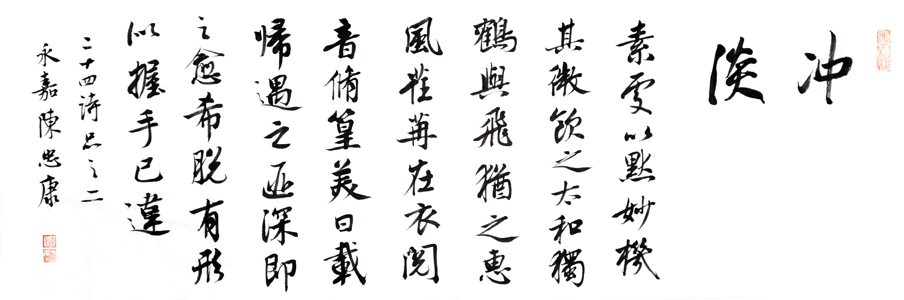 冲淡
素處以默妙機
其微飲之太和獨
鶴與飛猶之惠
風荏苒在衣閱
音脩篁美曰載
歸遇之匪深即
之愈希脫有形
似握手已違
二十四詩品之二
永嘉陳忠康